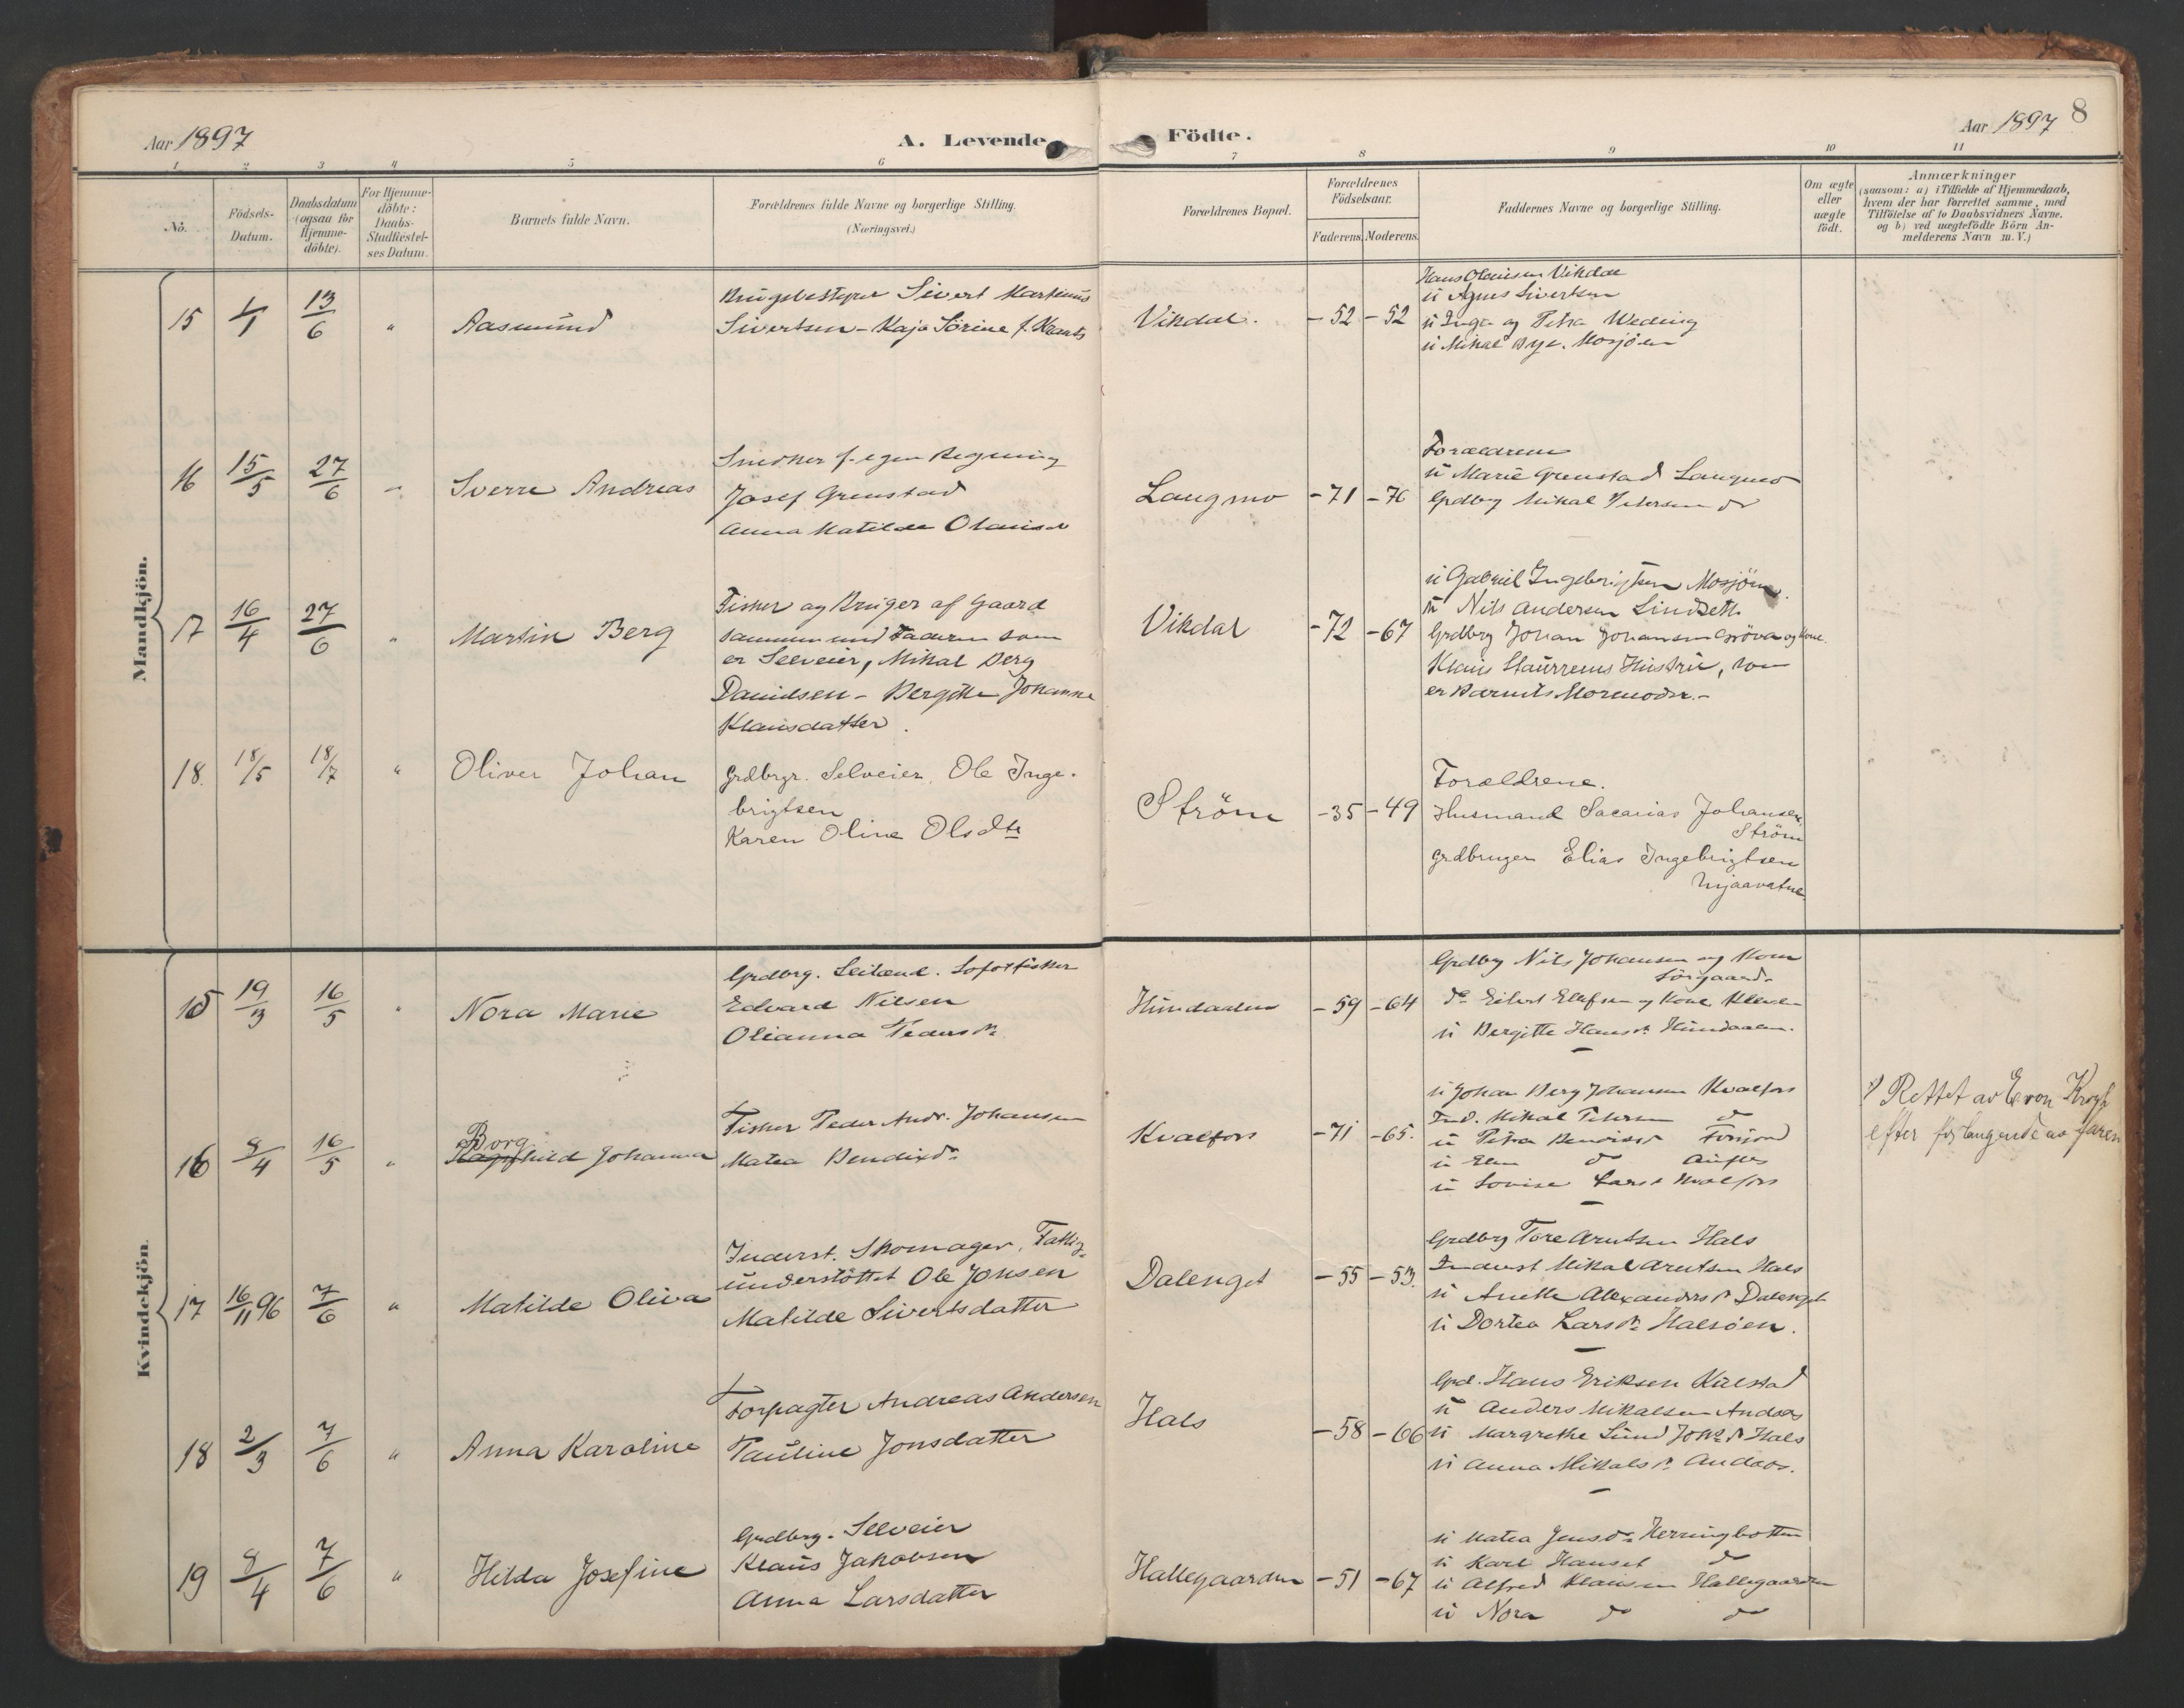 Aar 1897
A. Levende
Födte.
Aar 1897
8
1 2 3 4 5 6 7 8 9 10 11
No.
Födsels-
Datum.
Daabsdatum
(ogsaa for
Hjemme-
döbte).
For Hjemme-
döbte:
Daabs-
Stadfæstel-
ses Datum.
Barnets fulde Navn.
Forældrenes fulde Navne og borgerlige Stilling.
(Næringsvei.)
Forældrenes Bopæl.
Forældrenes
Födselsaar.
Faderens. Moderens.
Faddernes Navne og borgerlige Stilling.
Om ægte
eller
uægte
födt.
Anmærkninger
(saasom: a) i Tilfælde af Hjemmedaab,
hvem der har forrettet samme, med
Tilföielse af to Daabsvidners Navne.
og b) ved uægtefödte Börn An-
melderens Navn m. V.)
Mandkjön.
15 1/1 13/6 " Aasmund
Brugsbestyrer Sivert Martinus
Sivertsen - Kaja Sörine f.
Vikdal. -52 -52
Hans Olausen Vikdal
u Agnes Sivertsen
u Inga og Petra Weding
u Mikal Bye. Mosjöen
16 15/5 27/6 " Sverre Andreas
Snedker f. egen Regning
Josef Grenstad
Anna Matilde Olausd
Langmo -71 -76
Forældrene
u Marie Grenstad Langmo
Grdbrg Mikal Petersen do
17 16/4 27/6 " Martin Berg
Fisker og Bruger af Gaard
sammen med Faderen som
er Selveier, Mikal Berg
Danielsen - Bergitte Johanna
Klausdatter.
Vikdal -72 -67
u Gabriel Ingebrigtsen Mosjöen.
u Nils Andersen Lindset.
Grdbrg Johan Johansen Gröva og Kone.
Klaus Hustru, som
er Barnets Mormoder.-
18. 18/5 18/7 " Oliver Johan
Grdbrgr. Selveier. Ole Inge-
brigtsen
Karen Oline Olsdtr
Ström -35 -49
Forældrene.
Husmand Sacarias Johansen,
Ström
grdbruger Elias Ingebrigtsen
Kvindekjön.
15 19/3 16/5 " Nora Marie
Grdbrg. Leilænd. Lofotfisker
Edvard Nilsen
Olianna Pedersdr.
Hundaalen -59 -64
Grdbrg Nils Johansen og Kone
Sörgaard.
do Eilert Ellefsen og Kone
u Bergitte Hansdr Hundaalen.
16 8/4 16/5 " Borg
Ragnhild Johanna
Fisker Peder Andr. Johansen
Matea Bendixdr
Kvalfors -71 -65.
u Johan Berg Johansen Kvalfors
Ind. Mikal Petersen do
u Petra Bendixdr
u Elen do
u Lovise Larsd Kvalfors
x) Rettet av E von Krogh
efter forlangende av faren
17 16/11 96 7/6 " Matilde Oliva
Inderst. Skomager, Fattig-
understöttet Ole Jonsen
Matilde Sivertsdatter
Dalenget -55 -53.
Grdbrg Tore Arntsen Hals
Inderst Mikal Arntsen Hals
u Anette Alexandersdr Dalenget
u Dortea Larsdr Halsöen.
18 2/3 7/6 " Anna Karoline
Forpagter Andreas Andersen
Pauline Jonsdatter
Hals -58 -66
Grd. Hans Eriksen Kulstad
u Anders Mikalsen Andaas
u Margrethe Lund Johsdr Hals
u Anna Mikalsdr Andaas.
19 8/4 7/6 " Hilda Josefine
Grdbrg. Selveier
Klaus Jakobsen
Anna Larsdatter
Hallegaarden -51 -67
u Matea Jensdr Herringbotten
u Karl do
u Alfred Klausen Hallegaarden
u Nora do do